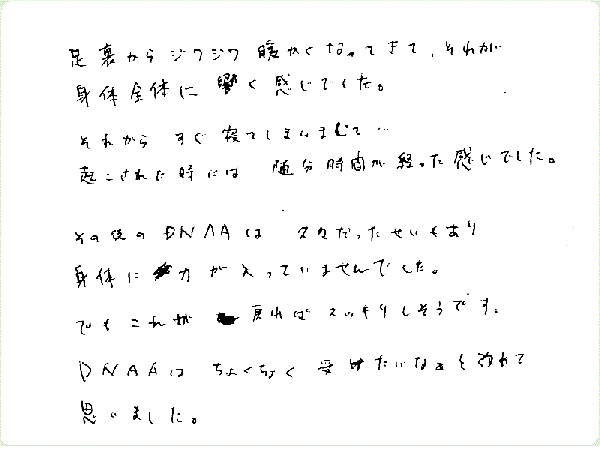 足裏からジワジワ暖かくなってきて、それが
身体全体に響く感じでした。
それから すぐ寝てしまいまして…
起こされた時には 随分時間が経った感じでした。
その後のDNAAは 夕食だったせいもあり
身体に 力が入っていませんでした。
でも これが 戻ればスッキリしそうです。
DNAAは ちょくちょく 受けたいなぁと
思いました。